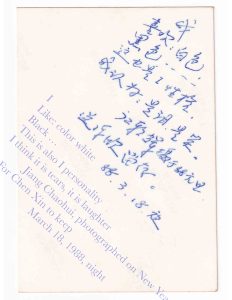 我
喜欢：白色，
黑色……
这也是I性格，
我认为：是泪是笑。
摄于88元旦.
送陈 留念。
88.3.18夜
I
Like color white
Black …
This is also I personality
I think it is tears, it is laughter
Jiang Chaohui, photographed on New Yea
For Chen Xin to keep
March 18, 1988, night